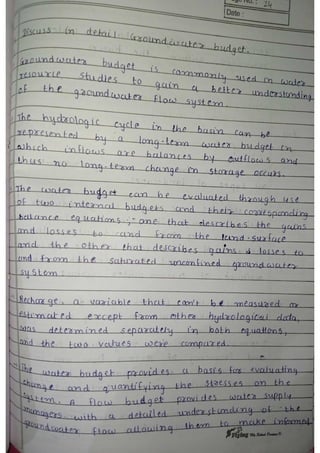 Page No.: 24
Date:
Discuss in detail Groundwater budget.
Groundwater budget is commonly used in water
resource studies to gain a better understanding
of the groundwater flow system.
The hydrologic cycle in the basin can be
represented by a long-term water budget in
which inflows are balances by outflows and
thus no long-term change in storage occurs.
The water budget can be evaluated through use
of two internal budgets and their corresponding
balance equations; one that describes the gains
and losses to and from the land-surface
and the other that describes gains & losses to
and from the saturated unconfined groundwater
system.
Recharge, a variable that can't be measured or
estimated except from other hydrological data,
was determined separately in both equations,
and the two values were compared.
The water budget provides a basis for evaluating
change and quantifying the stresses on the
system. A flow budget provides water supply
managers with a detailed understanding of the
groundwater flow allowing them to make informed
Flying